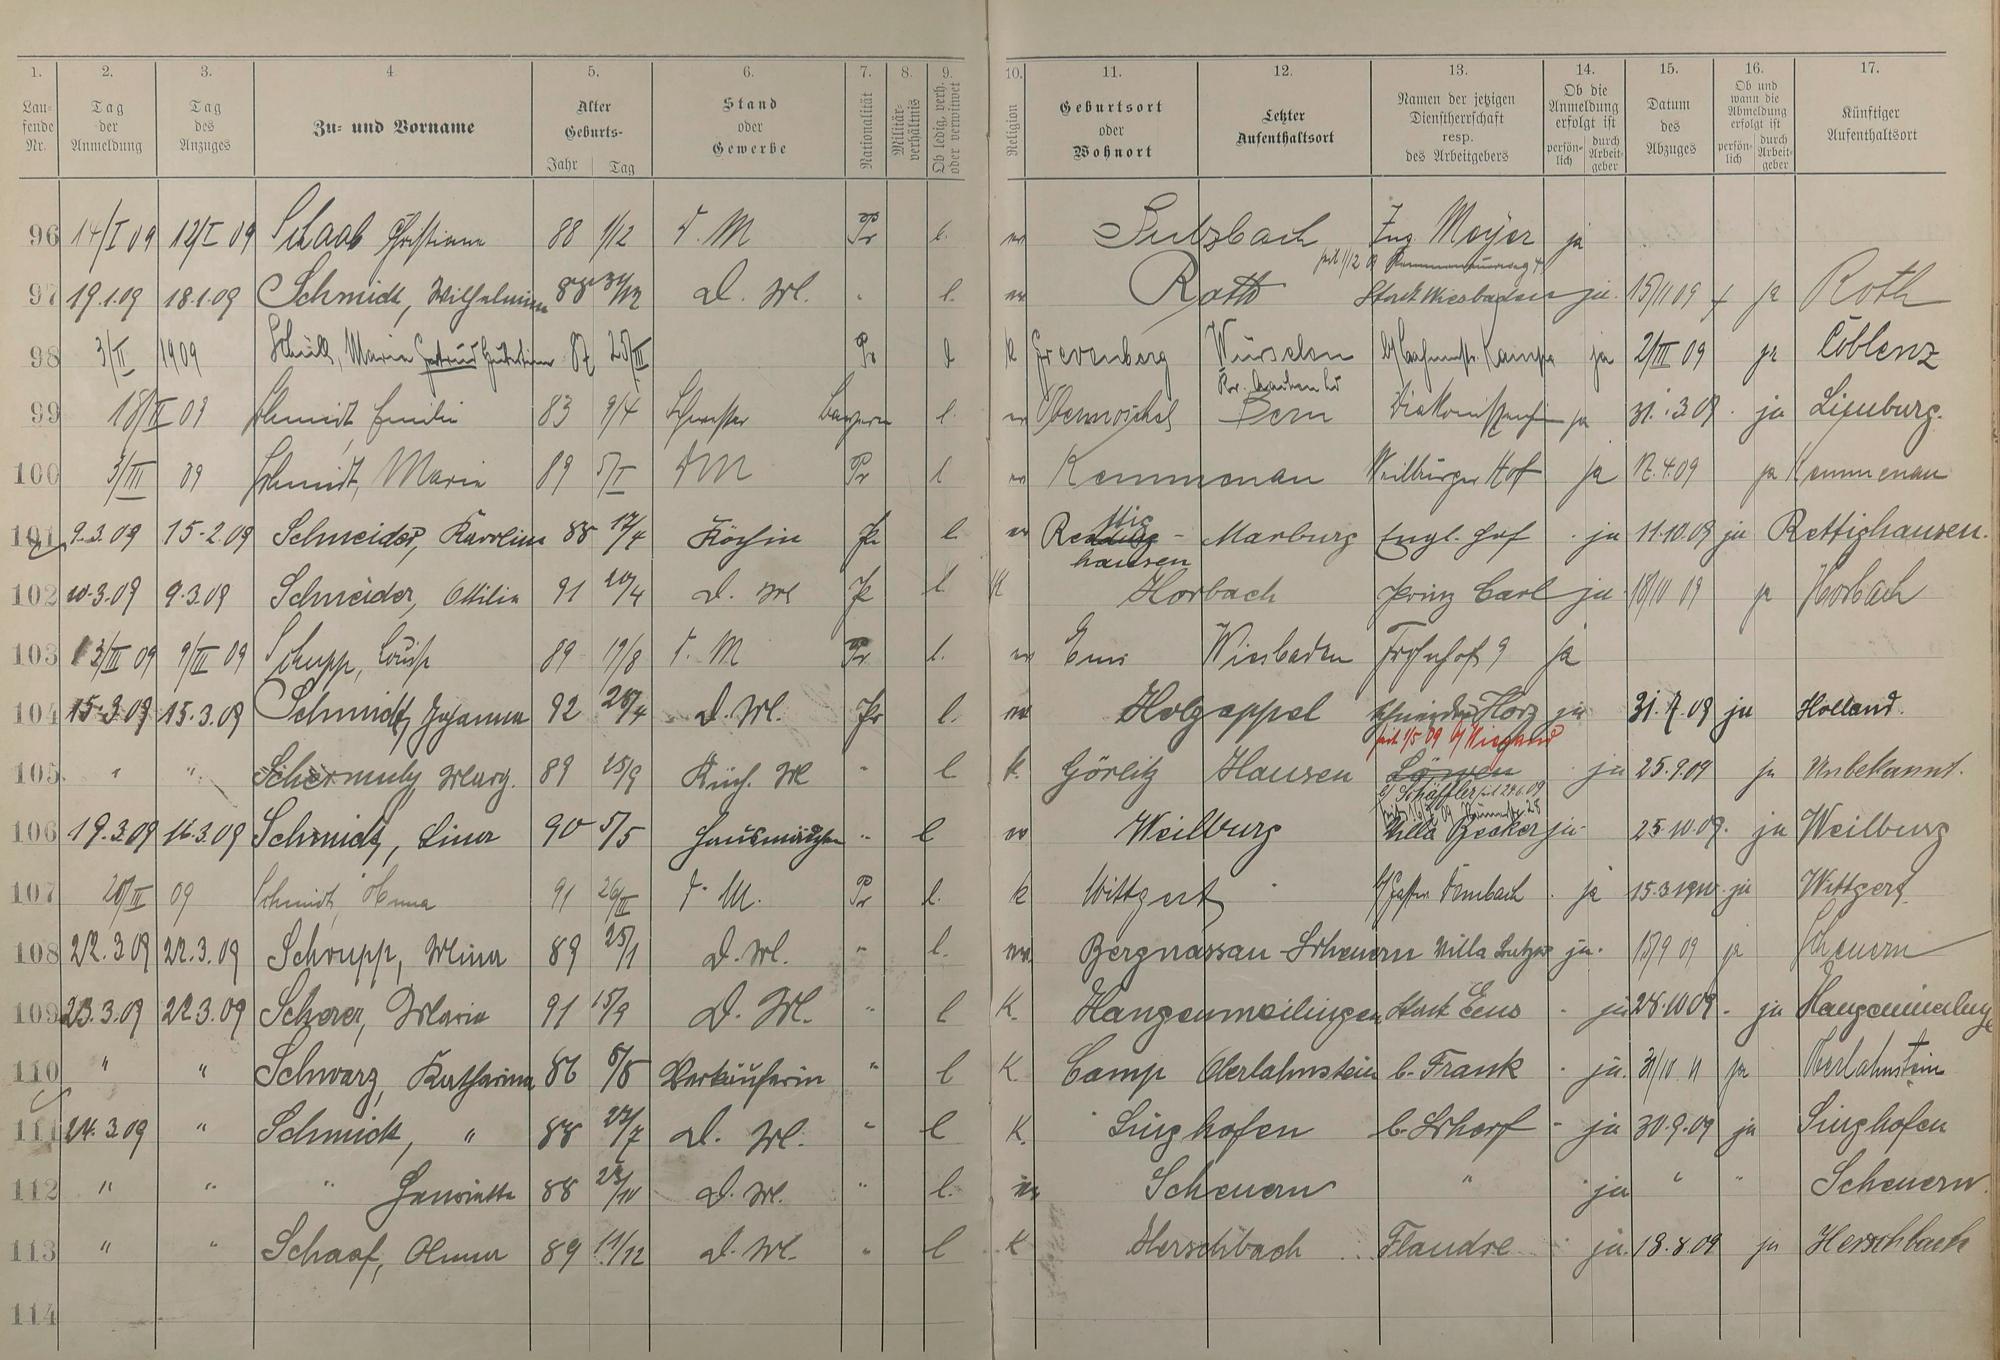 1. 2. 3. 4. 5. 6. 7. 8. 9. 10. 11. 12. 13. 14. 15. 16. 17.
Lau-
fende
Nr.
Tag
der
Anmeldung
Tag
des
Anzuges
Zu- und Vorname
Alter
Geburts-
Jahr Tag
Stand
oder
Gewerbe
Nationalität
Militär-
verhältnis
Ob ledig, verh.
oder verwitwet
Religion
Geburtsort
oder
Wohnort
Letzter
Aufenthaltsort
Namen der jetzigen
Dienstherrschaft
resp.
des Arbeitgebers
Ob die
Anmeldung
erfolgt ist
persön-
lich
durch
Arbeit-
geber
Datum
des
Abzuges
Ob und
wann die
Abmeldung
erfolgt ist
persön-
lich
durch
Arbeit-
geber
Künftiger
Aufenthaltsort
96 14/I 09 12/I 09 Schaab Christiane 88 1/12 d. M Pr l. Sulzbach Meyer ja
97 19.1.09 18.1.09 Schmidt, Wilhelmine 88 D. M. " l. Roth Stadt Wiesbaden ja. 15/11 09 ja Roth
98 3/II 1909 Maria 87 25/III Pr k Grevenberg Würselen ja 2/III 09 ja Coblenz
99 18/II 09 Schmidt Emilie 83 9/4 Schwester Bayern l. Obermoschel Bern ja 31.3.09. ja Limburg.
100 3/III 09 Schmidt, Marie 89 5/I d M Pr l Kemmenau Weilburger Hof ja 12.4.09 ja Kemmenau
101 9.3.09 15.2.09 Schneider, Karoline 88 17/4 Köchin Pr l. hausen Marburg Engl. Hof ja 11.10.09 ja Rettighausen.
102 10.3.09 9.3.09 Schneider, Ottilie 91 20/4 D. M Pr l. K Horbach Prinz Carl ja 18/10 09 ja Horbach
103 13/III 09 9/III 09 Schupp, Louise 89 19/8 d. M Pr l. Ems Wiesbaden Frohnhof 9 ja
104 15.3.09 15.3.09 Schmidt, Johanna 92 28/4 D. M. Pr l. Holzappel ja 31.7.09 ja Holland.
seit 1/5 09 b/ Wiegand
105. " " Schermuly Marg. 89 25/9 Küch. M " l k. Görlitz Hausen Löwen ja 25.9.09 ja Unbekannt.
b/ Schäffler seit 24.6.09
106 19.3.09 16.3.09 Schmidt, Lina 90 5/5 Hausmädchen " l Weilburg Villa Becker ja 25.10.09. ja Weilburg
107 20/III 09 Schmidt, Anna 91 26/III d. M. Pr l. k Wittgert ja 15.3.1910 ja Wittgert
108 22.3.09 22.3.09 Schrupp, Mina 89 25/1 D. M. " l. Bergnassau-Scheuern Villa ja. 15/9 09 ja Scheuern
109 23.3.09 22.3.09 Scherer, Marie 91 15/9 D. M. " l K. Hangenmeilingen Stadt Ems ja 28.10 09. ja
110 " " Schwarz, Katharina 86 6/8 Verkäuferin " l K. Camp Oberlahnstein b. Frank ja. 31/10 11 ja Oberlahnstein
111 24.3.09 " Schmidt, " 88 D. M. " l K. Singhofen b. Schorf ja 30.9.09 ja Singhofen
112 " " " Henriette 88 D. M. " l. Scheuern " ja " " Scheuern.
113 " " Schaaf, Anna 89 11/12 D. M. " l K Herschbach Flandre ja. 18.8.09 ja Herschbach
114